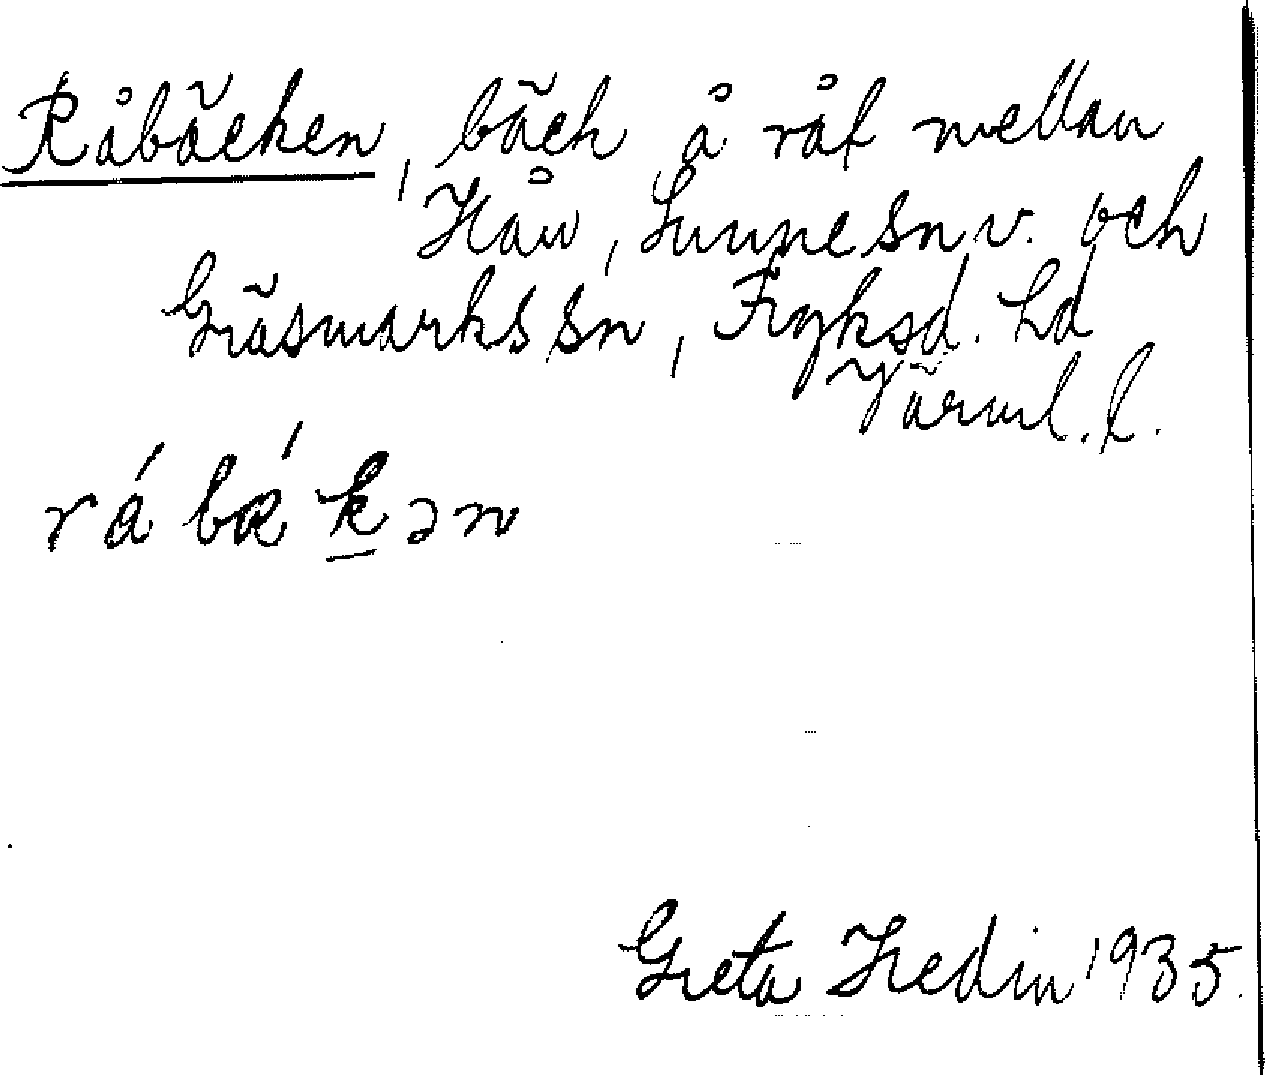 Råbäcken, bäck å råf mellan
Hån, Sunne sn v. och
Gräsmarks sn, Fryksd. hd
Värml. l.
rá bǽ k̲ən
Greta Hedin 1935.